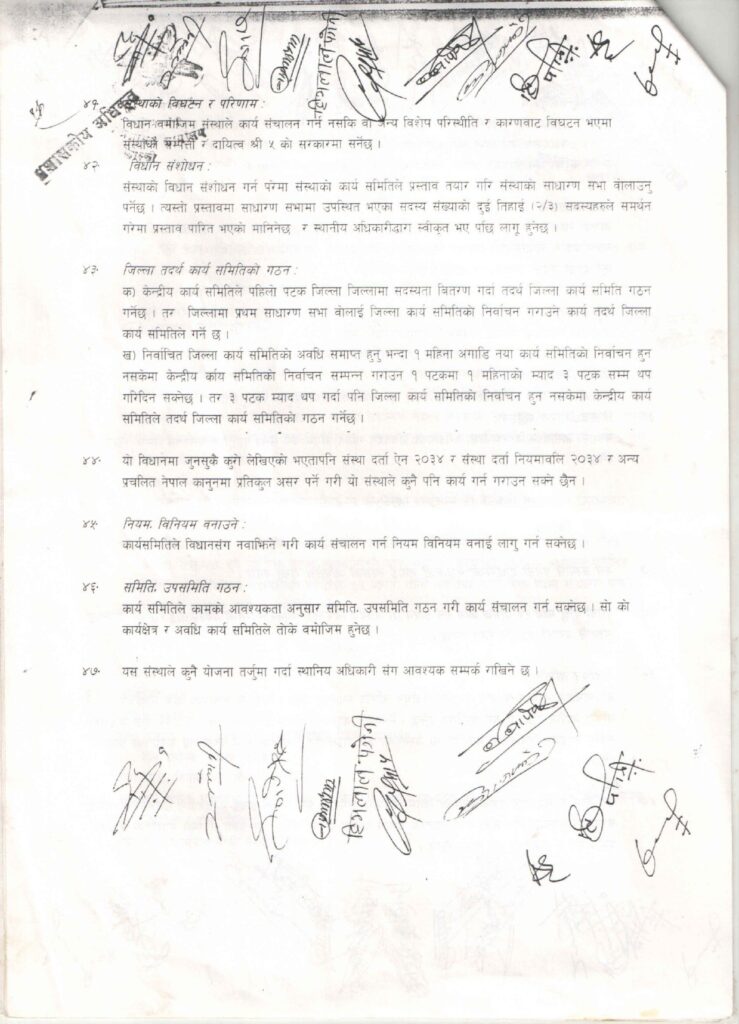 हिरालाल फौजी
४१. संस्थाको विघटन र परिणाम :
विधान वमोजिम संस्थाले कार्य संचालन गर्न नसकि वा अन्य विशेष परिस्थीति र कारणवाट विघटन भएमा
संस्थाको सम्पत्ती र दायित्व श्री ५ को सरकारमा सर्नेछ ।
प्रशासकीय अधिकृत
४२. विधान संशोधन :
संस्थाको विधान संशोधन गर्न परेमा संस्थाको कार्य समितिले प्रस्ताव तयार गरि संस्थाको साधारण सभा वोलाउनु
पर्नेछ । त्यस्तो प्रस्तावमा साधारण सभामा उपस्थित भएका सदस्य संख्याको दुई तिहाई (२/३) सदस्यहरुले समर्थन
गरेमा प्रस्ताव पारित भएको मानिनेछ र स्थानीय अधिकारीद्वारा स्वीकृत भए पछि लागू हुनेछ ।
४३. जिल्ला तदर्थ कार्य समितिको गठन :
क) केन्द्रीय कार्य समितिले पहिलो पटक जिल्ला जिल्लामा सदस्यता वितरण गर्दा तदर्थ जिल्ला कार्य समिति गठन
गर्नेछ । तर जिल्लामा प्रथम साधारण सभा वोलाई जिल्ला कार्य समितिको निर्वाचन गराउने कार्य तदर्थ जिल्ला
कार्य समितिले गर्ने छ ।
ख) निर्वाचित जिल्ला कार्य समितिको अवधि समाप्त हुनु भन्दा १ महिना अगाडि नया कार्य समितिको निर्वाचन हुन
नसकेमा केन्द्रीय कार्य समितिको निर्वाचन सम्पन्न गराउन १ पटकमा १ महिनाको म्याद ३ पटक सम्म थप
गरिदिन सक्नेछ । तर ३ पटक म्याद थप गर्दा पनि जिल्ला कार्य समितिको निर्वाचन हुन नसकेमा केन्द्रीय कार्य
समितिले तदर्थ जिल्ला कार्य समितिको गठन गर्नेछ ।
४४. यो विधानमा जुनसुकै कुरो लेखिएको भएतापनि संस्था दर्ता ऐन २०३४ र संस्था दर्ता नियमावलि २०३४ र अन्य
प्रचलित नेपाल कानुनमा प्रतिकुल असर पर्ने गरी यो संस्थाले कुनै पनि कार्य गर्न गराउन सक्ने छैन ।
४५. नियम, विनियम वनाउने :
कार्यसमितिले विधानसंग नवाझिने गरी कार्य संचालन गर्न नियम विनियम वनाई लागु गर्न सक्नेछ ।
४६. समिति, उपसमिति गठन :
कार्य समितिले कामको आवश्यकता अनुसार समिति, उपसमिति गठन गरी कार्य संचालन गर्न सक्नेछ । सो को
कार्यक्षेत्र र अवधि कार्य समितिले तोके वमोजिम हुनेछ ।
४७. यस संस्थाले कुनै योजना तर्जुमा गर्दा स्थानिय अधिकारी संग आवश्यक सम्पर्क राखिने छ ।